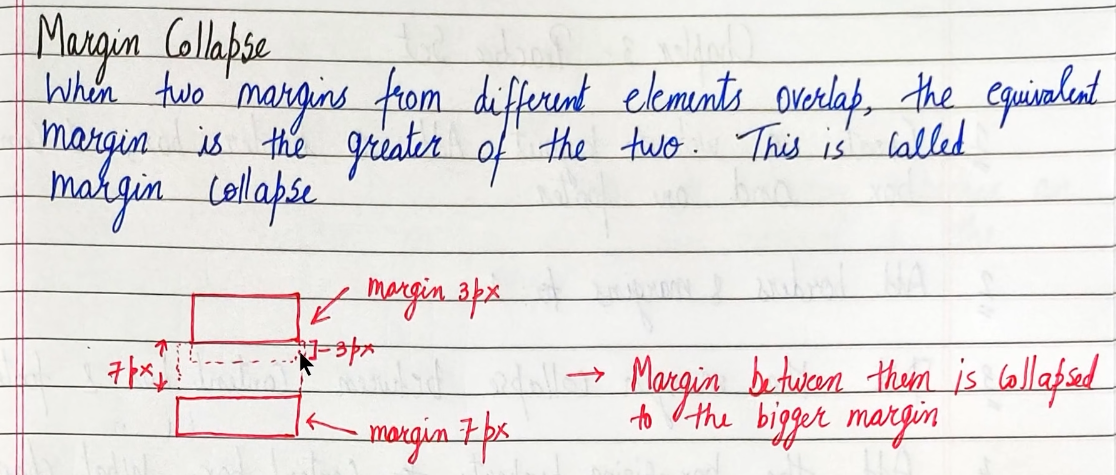 Margin Collapse
When two margins from different elements overlap, the equivalent
margin is the greater of the two. This is called
margin collapse
margin 3px
3px
7px
→ Margin between them is collapsed
to the bigger margin
margin 7px